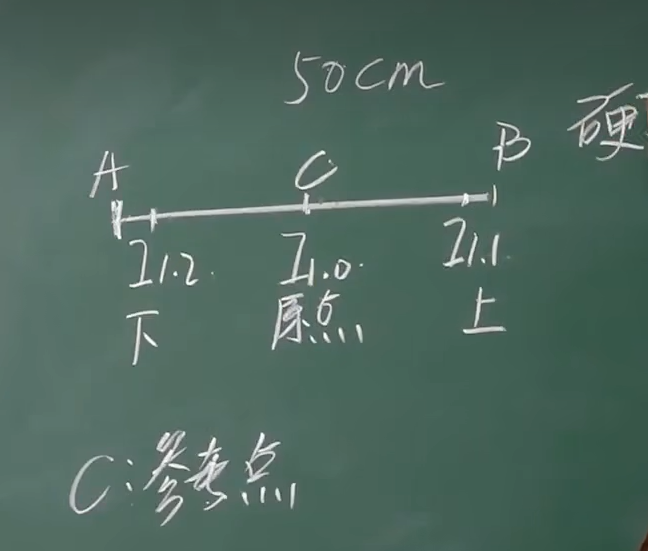 50cm
A C B 硬
I1.2. I1.0. I1.1.
下 原点 上
C:参考点